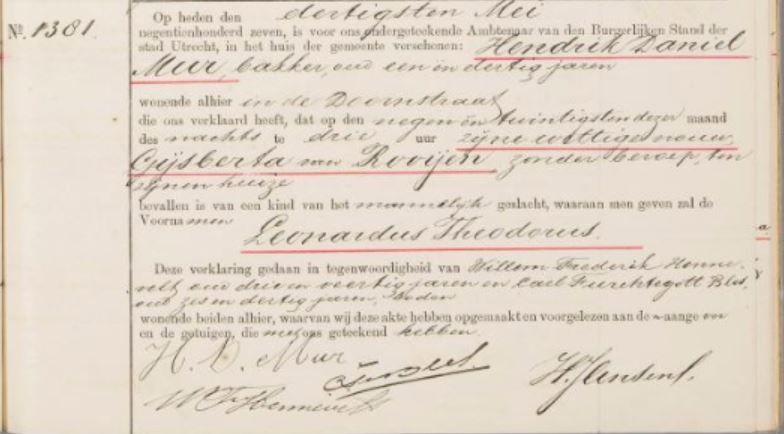 Nº. 1381.
Op heden den dertigsten Mei
negentienhonderd zeven, is voor ons ondergeteekende Ambtenaar van den Burgerlijken Stand der
stad Utrecht, in het huis der gemeente verschenen: Hendrik Daniel
Mur, bakker, oud een en dertig jaren
wonende alhier in de Doornstraat
die ons verklaard heeft, dat op den negen en twintigsten dezer maand
des nachts te drie uur zijne wettige vrouw,
Gijsberta van Rooijen, zonder beroep, ten
zijnen huize
bevallen is van een kind van het mannelijk geslacht, waaraan men geven zal de
Voornamen
Leonardus Theodorus.
Deze verklaring gedaan in tegenwoordigheid van Willem Frederik Henne-
velt oud drie en veertig jaren en Carl Furchtegott
oud zes en dertig jaren, boden
wonende beiden alhier, waarvan wij deze akte hebben opgemaakt en voorgelezen aan de aangever
en de getuigen, die met ons geteekend hebben.
H. D. Mur
W F Hennevelt
H. Jansen